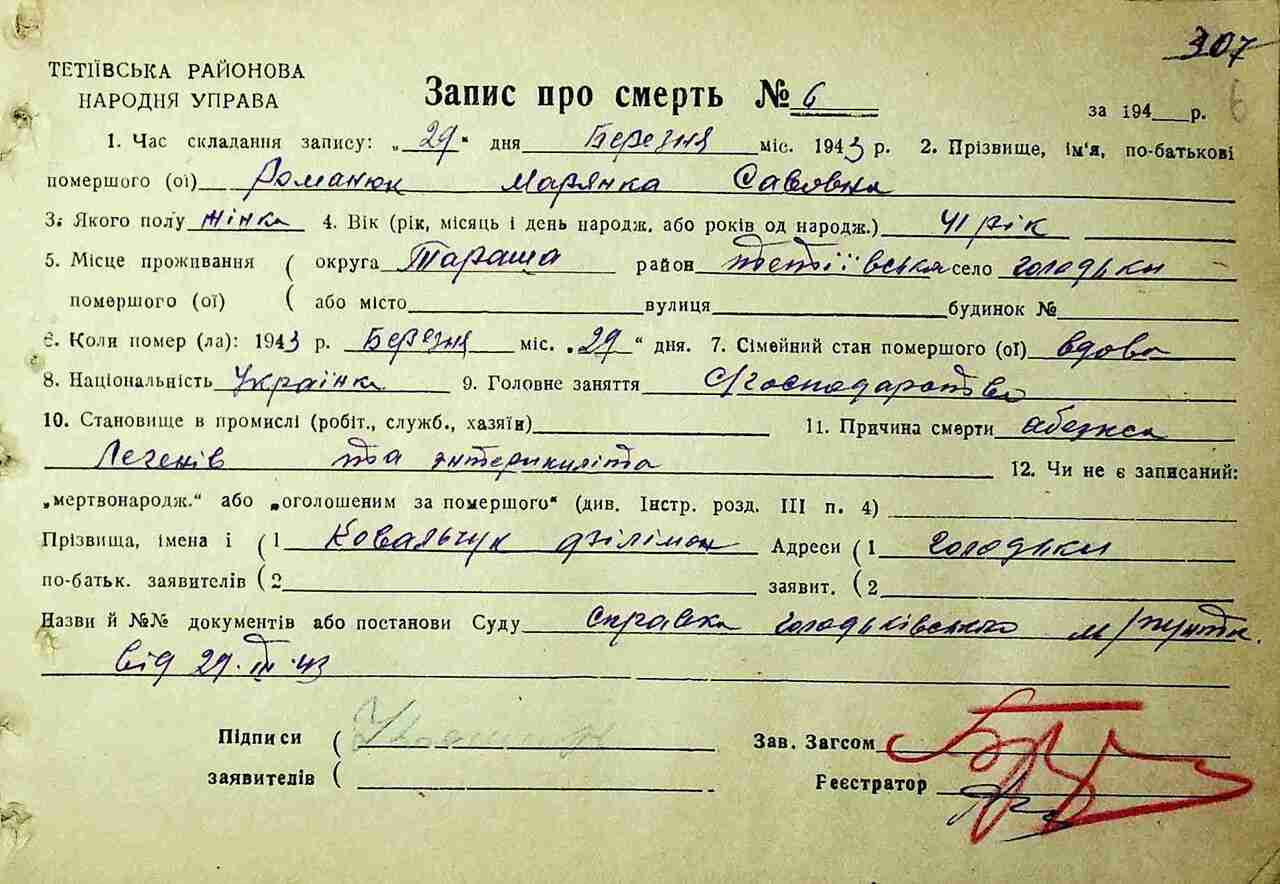 307
6
ТЕТІЇВСЬКА РАЙОНОВА
НАРОДНЯ УПРАВА
Запис про смерть № 6
за 194 р.
1. Час складання запису: „29“ дня Березня міс. 1943 р. 2. Прізвище, ім'я, по-батькові
помершого (ої) Романюк Марянка Савовна
3. Якого полу жінка 4. Вік (рік, місяць і день народж. або років од народж.) 41 рік
5. Місце проживання ( округа Тараща район тетіївська село голодьки
помершого (ої) ( або місто вулиця будинок №
6. Коли помер (ла): 1943 р. Березня міс. „29“ дня. 7. Сімейний стан помершого (ої) вдова
8. Національність Українка 9. Головне заняття С/господарство
10. Становище в промислі (робіт., служб., хазяїн) 11. Причина смерти абезкса
Легенів та
12. Чи не є записаний:
„мертвонародж.“ або „оголошеним за помершого“ (див. Інстр. розд. III п. 4)
Прізвища, імена і (1 Ковальчук Філімон Адреси (1 голодьки
по-батьк. заявителів (2 заявит. (2
Назви й №№ документів або постанови Суду Справка голодьківського м/пункта
від 29.III.43
Підписи (
Зав. Загсом
заявителів (
Реєстратор